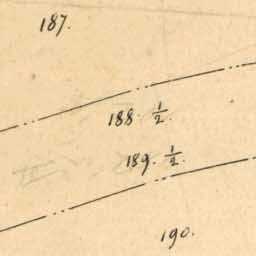 187.
188. ½.
189. ½.
190.